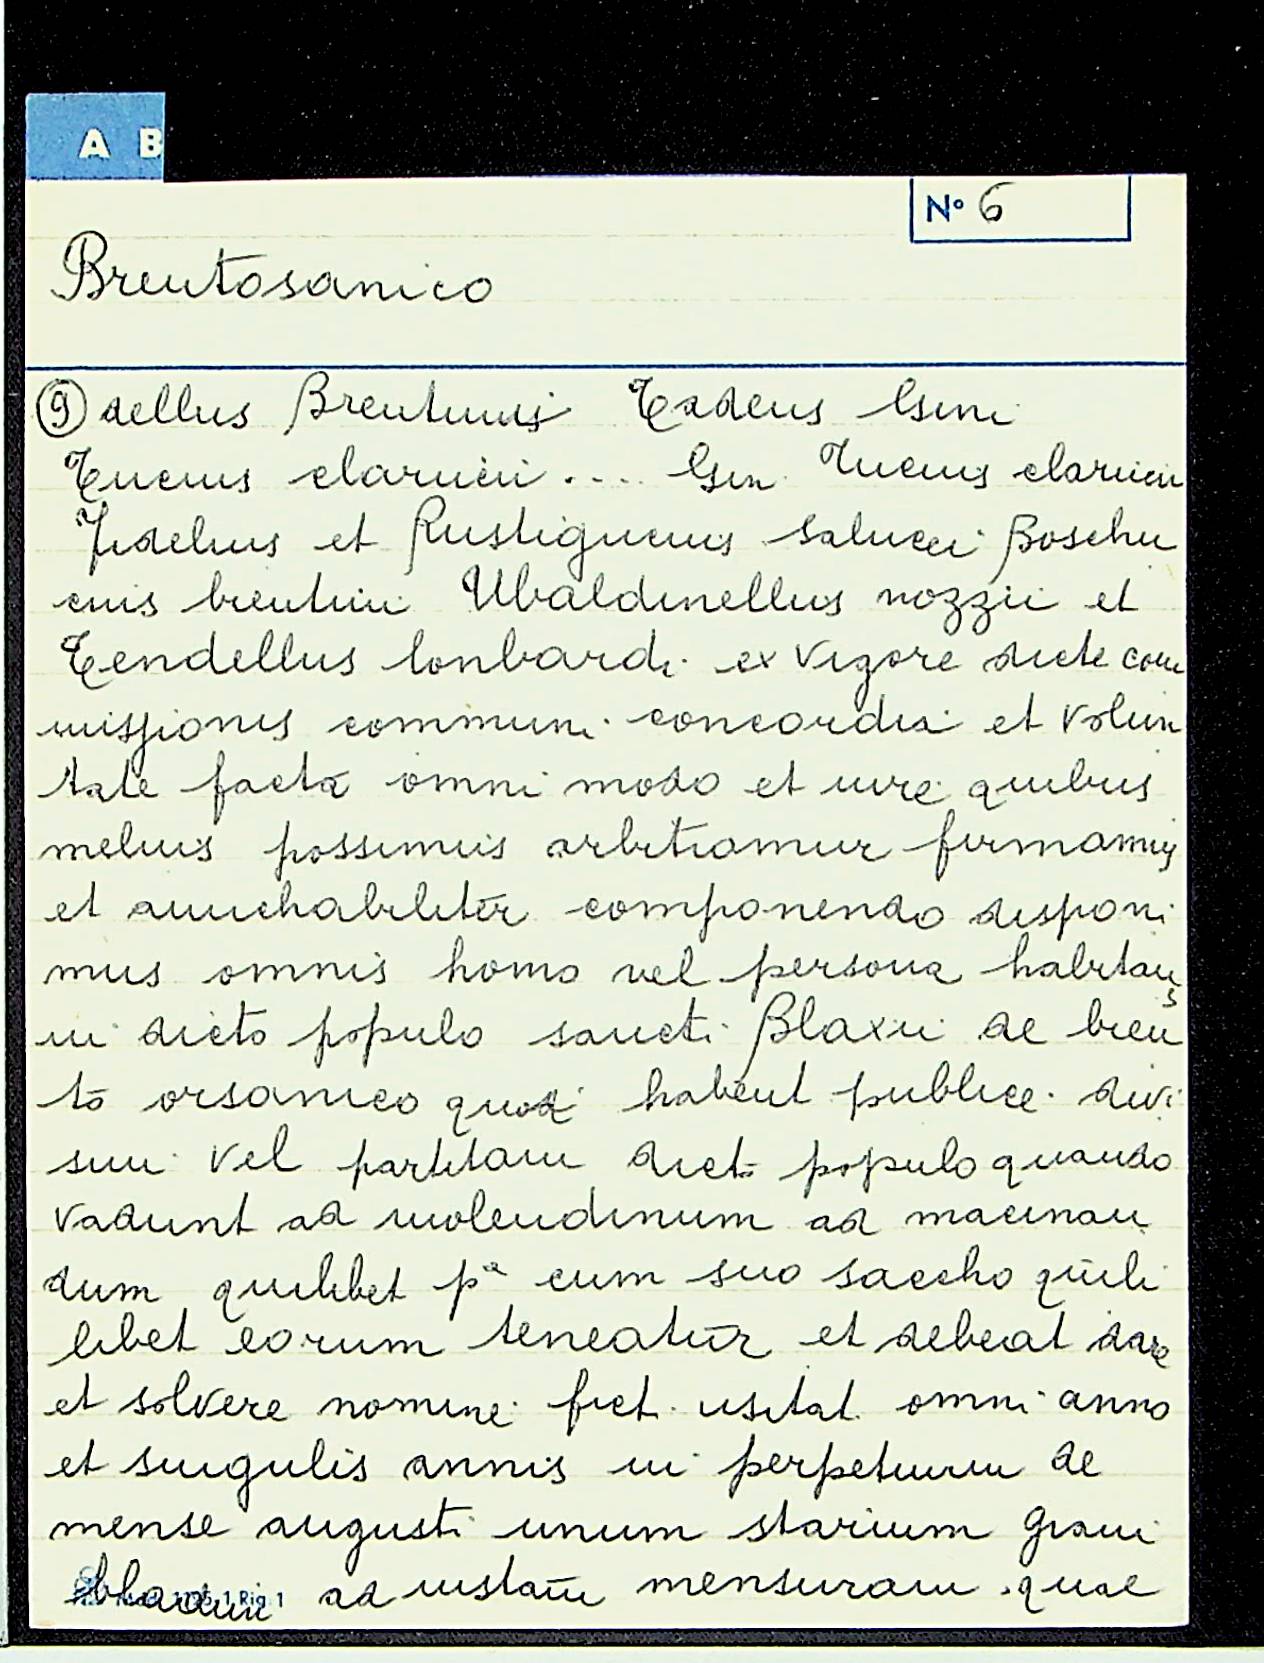 A B
N° 6
Brentosanico
9 dellus Brentinus Tadeus Gini
Tucius clarucii .... Gin Tucius clarucii
Fidelius et Rustiguccius salucci Boschu
cius brentini Ubaldinellus nozzii et
Tendellus lonbardi ex vigore dicte com
missionis communi concordia et volun
tate facta omni modo et iure quibus
melius possumus arbitramur firmamus
et amichabiliter componendo disponi
mus omnis homo vel persona habitans
in dicto populo sancti Blaxii de bren
to orsanico quod habent publice divi
sim vel partitam dicto populo quando
vadunt ad molendinum ad macinan
dum quilibet pa cum suo saccho quili
libet eorum teneatur et debeat dare
et solvere nomine fict usitat omni anno
et singulis annis in perpetuum de
mense augusti unum starium grani
bladum ad iustam mensuram quae